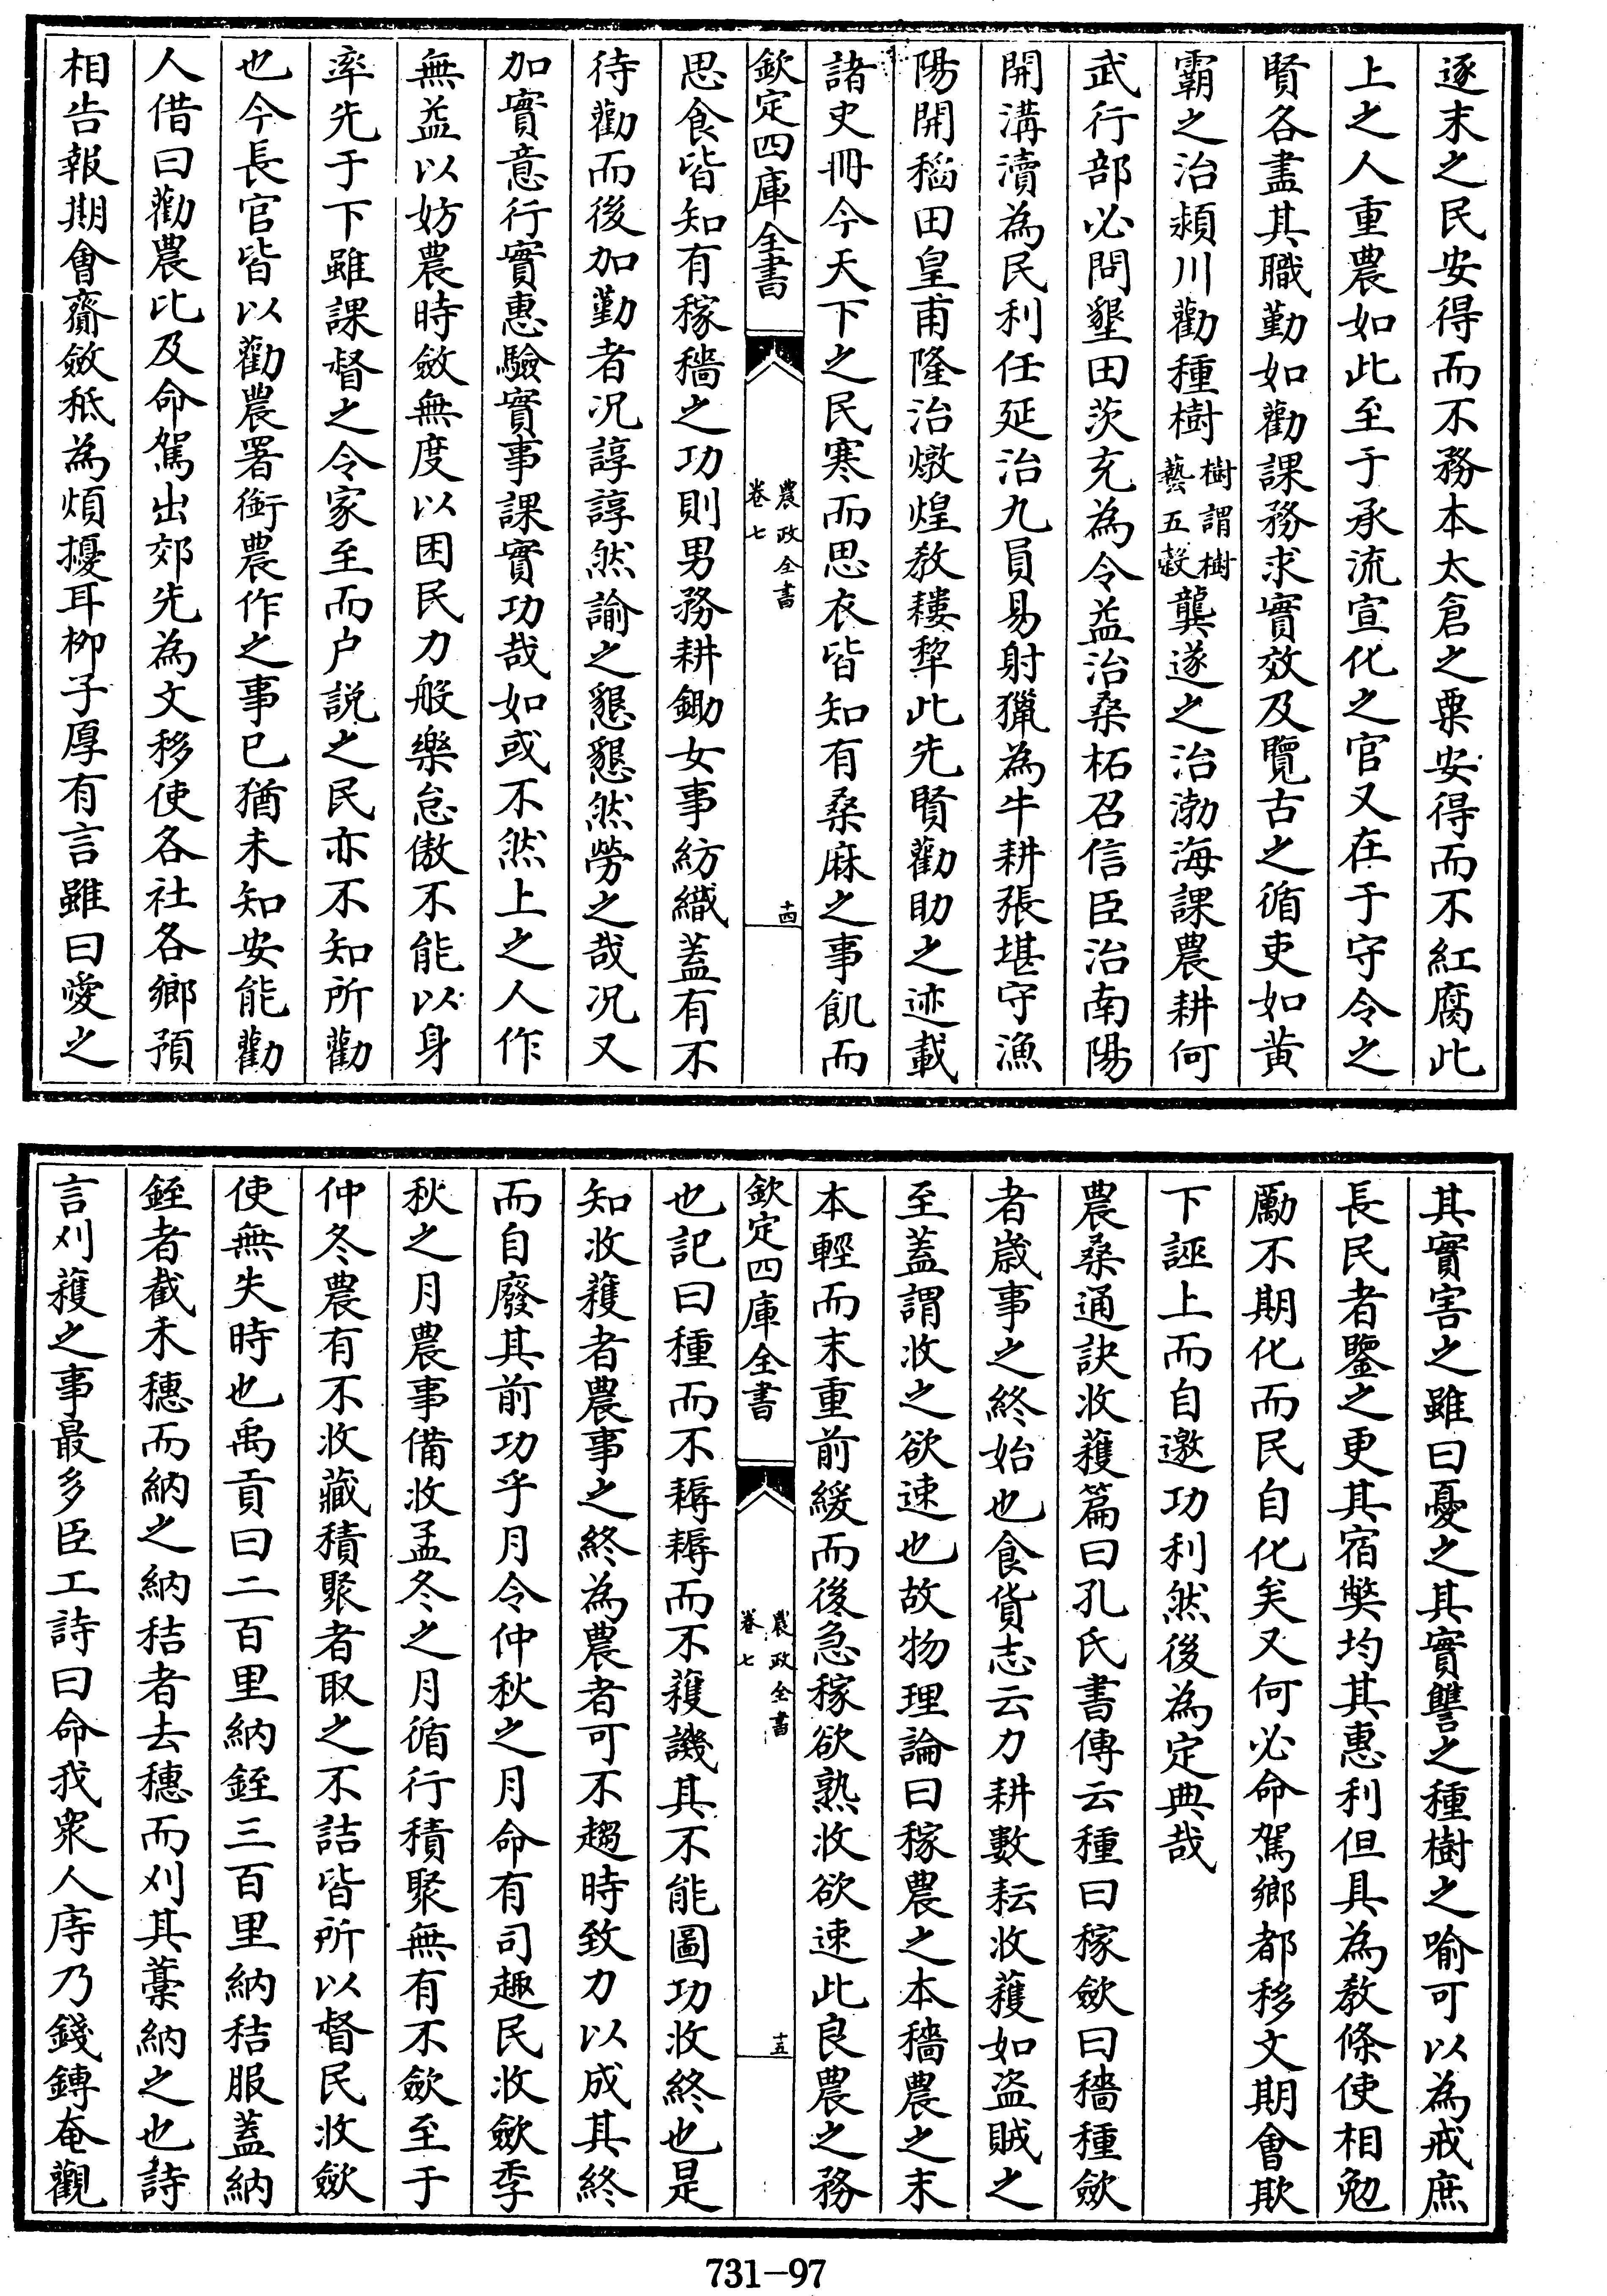 逐末之民安得而不務本太倉之粟安得而不紅腐此
上之人重農如此至于承流宣化之官又在于守令之
賢各盡其職勤如勸課務求實效及覽古之循吏如黄
霸之治潁川勸種樹樹謂樹藝五穀龔遂之治渤海課農耕何
武行部必問墾田茨充為令益治桑柘召信臣治南陽
開溝瀆為民利任延治九員易射獵為牛耕張堪守漁
陽開稻田皇甫隆治燉煌教耬犂此先賢勸助之迹載
諸史冊今天下之民寒而思衣皆知有桑麻之事飢而
欽定四庫全書
農政全書
卷七
十四
思食皆知有稼穡之功則男務耕鋤女事紡織蓋有不
待勸而後加勤者况諄諄然諭之懇懇然勞之哉况又
加實意行實惠驗實事課實功哉如或不然上之人作
無益以妨農時斂無度以困民力般樂怠傲不能以身
率先于下雖課督之令家至而户説之民亦不知所勸
也今長官皆以勸農署銜農作之事已猶未知安能勸
人借曰勸農比及命駕出郊先為文移使各社各鄉預
相告報期會齎斂秪為煩擾耳栁子厚有言雖曰愛之
其實害之雖曰憂之其實讐之種樹之喻可以為戒庶
長民者鑒之更其宿獘均其惠利但具為教條使相勉
勵不期化而民自化矣又何必命駕鄉都移文期會欺
下誣上而自邀功利然後為定典哉
農桑通訣收穫篇曰孔氏書傳云種曰稼歛曰穡種歛
者歳事之終始也食貨志云力耕數耘收穫如盜賊之
至蓋謂收之欲速也故物理論曰稼農之本穡農之末
本輕而末重前緩而後急稼欲熟收欲速此良農之務
欽定四庫全書
農政全書
卷七
十五
也記曰種而不耨耨而不穫譏其不能圖功收終也是
知收穫者農事之終為農者可不趨時致力以成其終
而自廢其前功乎月令仲秋之月命有司趣民收歛季
秋之月農事備收孟冬之月循行積聚無有不歛至于
仲冬農有不收藏積聚者取之不詰皆所以督民收歛
使無失時也禹貢曰二百里納銍三百里納秸服蓋納
銍者截禾穗而納之納秸者去穗而刈其藁納之也詩
言刈穫之事最多臣工詩曰命我衆人庤乃錢鎛奄觀
731-97